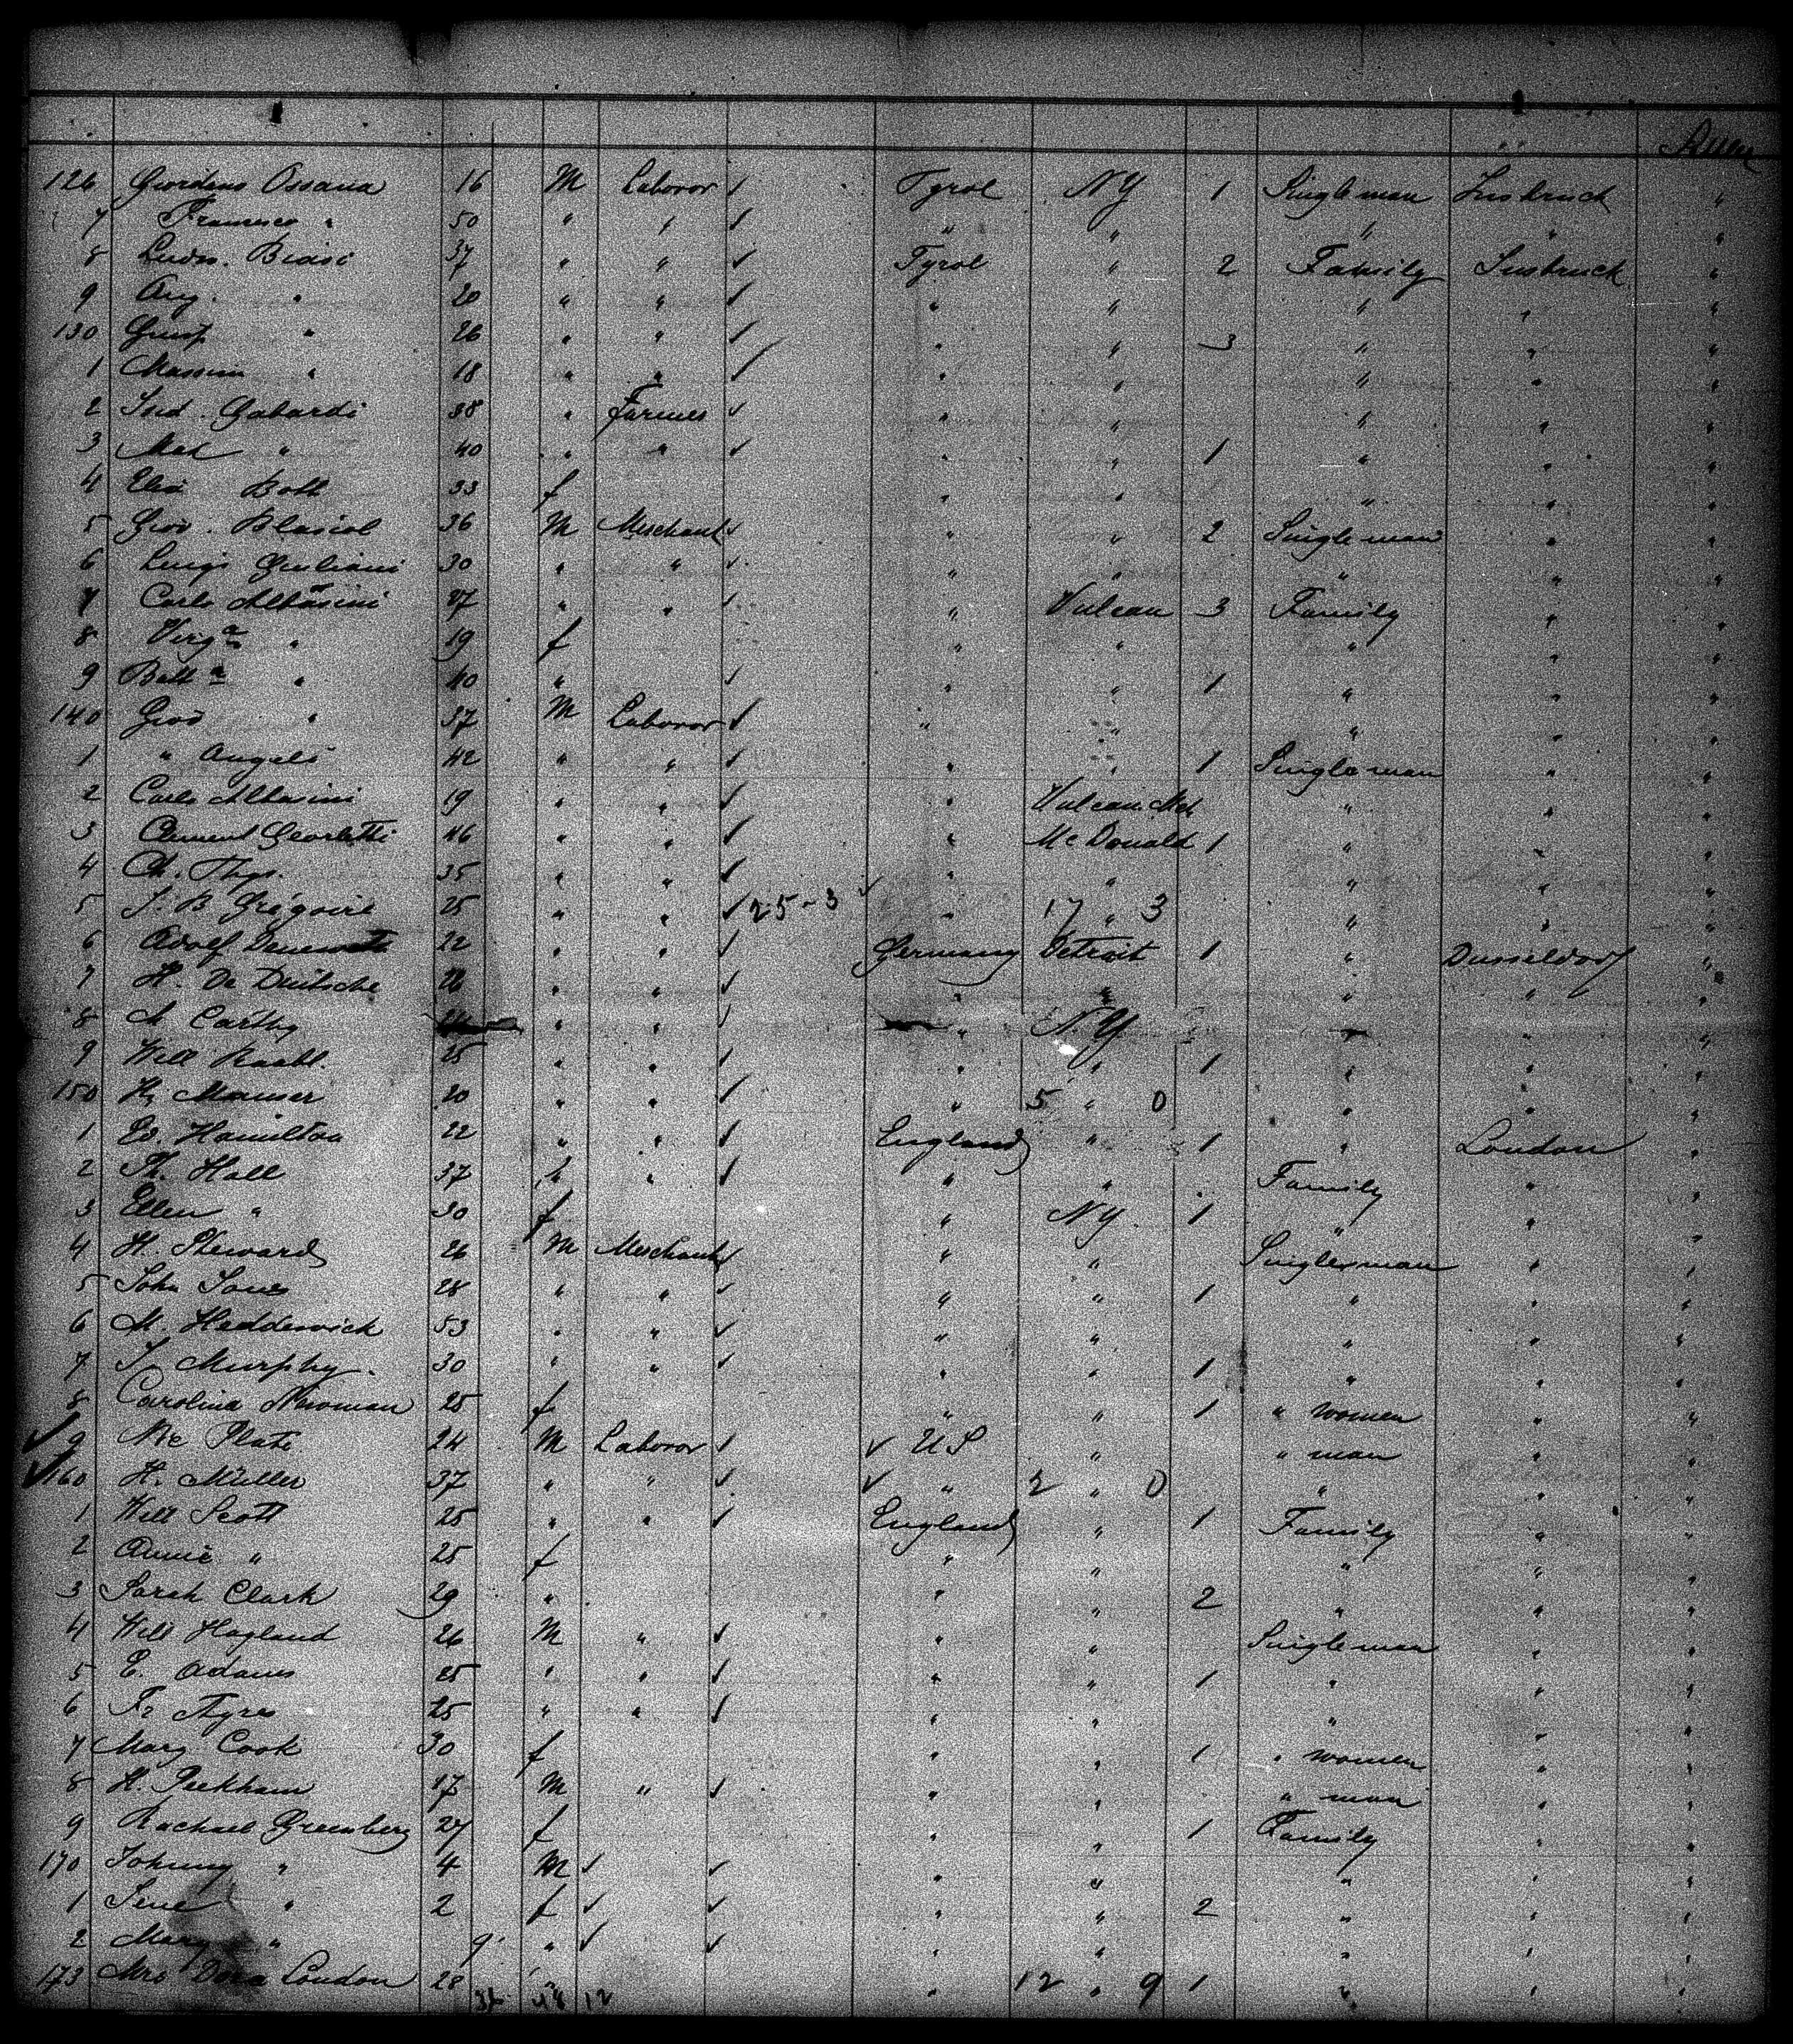 126 Giordano Ossana 16 M Laborer ✓ Tyrol NY 1 Single man Insbruck "
7 Francesco " 50 " " ✓ " " " " "
8 Ludov. Biasi 37 " " ✓ Tyrol " 2 Family Insbruck "
9 Aug. " 20 " " ✓ " " " " "
130 Giusp " 26 " " ✓ " " 3 " " "
1 Massim " 18 " " ✓ " " " " "
2 Ind. Gabardi 38 " Farmer ✓ " " " " "
3 Mad " 40 " " ✓ " " 1 " " "
4 Elisa Bott 33 f " " " " "
5 Giov. Blasiol 36 M Merchant ✓ " " 2 Single man " "
6 Luigi Giuliani 30 " " ✓ " " " " "
7 Carlo Albasini 27 " " ✓ " Vulcan 3 Family " "
8 Virg.a " 19 f " " " " "
9 Batt.a " 40 " ✓ " " 1 " " "
140 Giov " 37 M Laborer ✓ " " " " "
1 " Angeli 42 " " ✓ " " 1 Single man " "
2 Carlo Albasini 19 " " ✓ " Vulcan Mch " " "
3 Clement Georletti 46 " " ✓ " McDonald 1 " " "
4 Ch. Thys. 35 " " ✓ " " " " "
5 J. B Grégoire 25 " " ✓ 25-3 ✓ " 17 " 3 " " "
6 Adolf 22 " " ✓ Germany Detroit 1 " Dusseldorf "
7 H. De Duitsche 26 " " ✓ " " " " "
8 A Carthy " " ✓ " N.Y " " "
9 Will Raabt. 25 " " ✓ " " 1 " " "
150 Hy Manser 20 " " ✓ " 5 " 0 " " "
1 Ed. Hamilton 22 " " ✓ England " 1 " London "
2 Th. Hall 37 " " ✓ " " Family " "
3 Ellen " 30 f " NY. 1 " " "
4 H. Steward 26 M Merchant ✓ " " Single man " "
5 John Jones 28 " " ✓ " " 1 " " "
6 M. Hedderwick 53 " " ✓ " " " " "
7 J. Murphy. 30 " " ✓ " " 1 " " "
8 Carolina Newman 25 f " " 1 " women " "
✓ 9 Plate 24 M Laborer ✓ ✓ US " " man " "
✓ 160 H. Müller 37 " " ✓ ✓ " 2 " 0 " " "
1 Will Scott 25 " " ✓ England " 1 Family " "
2 Annie " 25 f " " " " "
3 Sarah Clark 29 " " " 2 " " "
4 Will Hagland 26 M " ✓ " " Single man " "
5 E. Adams 25 " " ✓ " " 1 " " "
6 Fr Ayres 25 " " ✓ " " " " "
7 Mary Cook 30 f " " 1 " women " "
8 H. Peekham 17 M " ✓ " " " man " "
9 Rachael Greenberg 27 f " " 1 Family " "
170 Johnny " 4 M ✓ ✓ " " " " "
1 Jene " 2 f ✓ ✓ " " 2 " " "
2 Mary " 9 " ✓ ✓ " " " " "
173 Mrs Dora London 28 " " 12 " 9 1 " " "
12